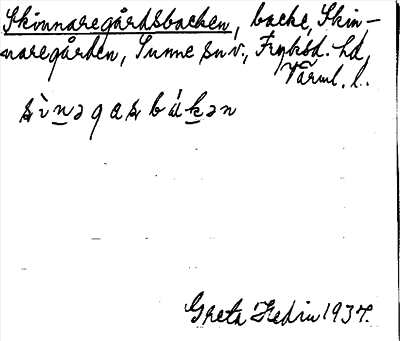 Skinnaregårdsbacken, backe, Skin-
naregården, Sunne sn v., Fryksd. hd,
Värml. l.
Greta Hedin 1937.